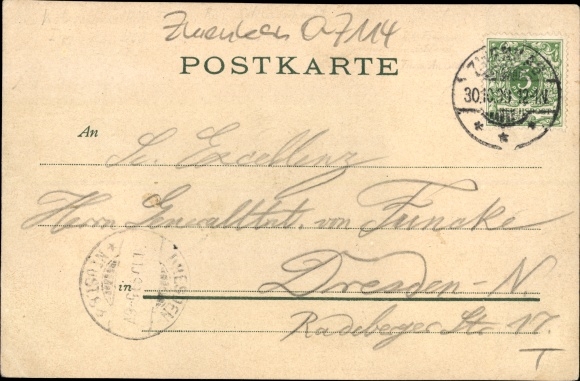 Zwenkau 07114
POSTKARTE
5
30.10.99 12-1N.
An
Sr. Excellenz
Herrn Genrallttnt. von Funcke
in Dresden-N.
Radeberger Str 17.
T